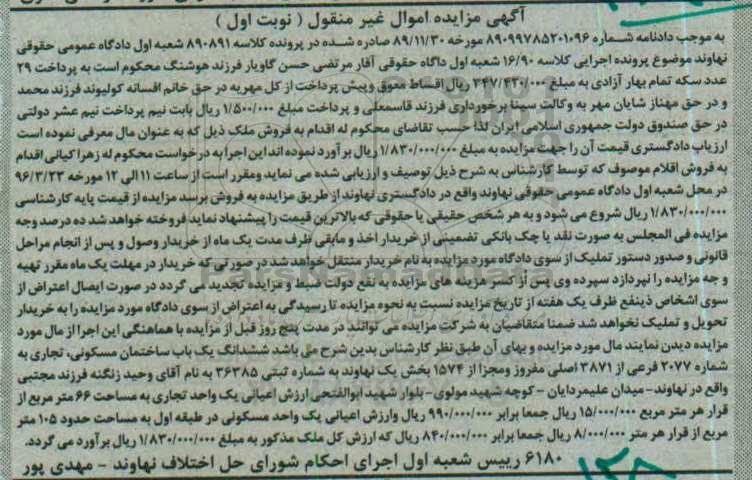 آگهی مزایده اموال غیر منقول ( نوبت اول )
به موجب دادنامه شماره ۸۹۰۹۹۷۸۵۲۰۱۰۹۶ مورخه ۸۹/۱۱/۳۰ صادره شده در پرونده کلاسه ۸۹۰۸۹۱ شعبه اول دادگاه عمومی حقوقی
نهاوند موضوع پرونده اجرایی کلاسه ۱۶/۹۰ شعبه اول داگاه حقوقی آقار مرتضی حسن گاویار فرزند هوشنگ محکوم است به پرداخت ۲۹
عدد سکه تمام بهار آزادی به مبلغ ۳۴۷/۴۳۰/۰۰۰ ریال اقساط معوق وپیش پرداخت از کل مهریه در حق خانم افسانه کولیوند فرزند محمد
و در حق مهناز شایان مهر به وکالت سینا برخورداری فرزند قاسمعلی و پرداخت مبلغ ۱/۵۰۰/۰۰۰ ریال بابت نیم پرداخت نیم عشر دولتی
در حق صندوق دولت جمهوری اسلامی ایران لذا حسب تقاضای محکوم له اقدام به فروش ملک ذیل که به عنوان مال معرفی نموده است
ارزیاب دادگستری قیمت آن را جهت مزایده به مبلغ ۱/۸۳۰/۰۰۰/۰۰۰ ریال بر آورد نموده اند این اجرا به درخواست محکوم له زهرا کیانی اقدام
به فروش اقلام موصوف که توسط کارشناس به شرح ذیل توصیف و ارزیابی شده می نماید ومقرر است از ساعت ۱۱ الی ۱۲ مورخه ۹۶/۳/۲۳
در محل شعبه اول دادگاه عمومی حقوقی نهاوند واقع در دادگستری نهاوند از طریق مزایده به فروش برسد مزایده از قیمت پایه کارشناسی
۱/۸۳۰/۰۰۰/۰۰۰ ریال شروع می شود و به هر شخص حقیقی یا حقوقی که بالاترین قیمت را پیشنهاد نماید فروخته خواهد شد ده درصد وجه
مزایده فی المجلس به صورت نقد یا چک بانکی تضمینی از خریدار اخذ و مابقی ظرف مدت یک ماه از خریدار وصول و پس از انجام مراحل
قانونی و صدور دستور تملیک از سوی دادگاه مورد مزایده به نام خریدار منتقل خواهد شد در صورتی که خریدار در مهلت یک ماه مقرر تهیه
و جه مزایده را نپردازد سپرده وی پس از کسر هزینه های مزایده به نفع دولت ضبط و مزایده تجدید می گردد در صورت ایصال اعتراض از
سوی اشخاص ذینفع ظرف یک هفته از تاریخ مزایده نسبت به نحوه مزایده تا رسیدگی به اعتراض از سوی دادگاه مورد مزایده را به خریدار
تحویل و تملیک نخواهد شد ضمنا متقاضیان به شرکت مزایده می توانند در مدت پنج روز قبل از مزایده با هماهنگی این اجرا از مال مورد
مزایده دیدن نمایند مال مورد مزایده و بهای آن طبق نظر کارشناس بدین شرح می باشد ششدانگ یک باب ساختمان مسکونی، تجاری به
شماره ۲۰۷۷ فرعی از ۳۸۷۱ اصلی مفروز ومجزا از ۱۵۷۴ بخش یک نهاوند به شماره ثبتی ۳۶۳۸۵ به نام آقای وحید زنگنه فرزند مجتبی
واقع در نهاوند- میدان علیمردایان - کوچه شهید مولوی - بلوار شهید ابوالفتحی ارزش اعیانی یک واحد تجاری به مساحت ۶۶ متر مربع از
قرار هر متر مربع ۱۵/۰۰۰/۰۰۰ ریال جمعا برابر ۹۹۰/۰۰۰/۰۰۰ ریال وارزش اعیانی یک واحد مسکونی در طبقه اول به مساحت حدود ۱۰۵ متر
مربع از قرار هر متر ۸/۰۰۰/۰۰۰ ریال جمعا برابر ۸۴۰/۰۰۰/۰۰۰ ریال که ارزش کل ملک مذکور به مبلغ ۱/۸۳۰/۰۰۰/۰۰۰ ریال برآورد می گردد.
۶۱۸۰ رییس شعبه اول اجرای احکام شورای حل اختلاف نهاوند - مهدی پور
۱۲۸